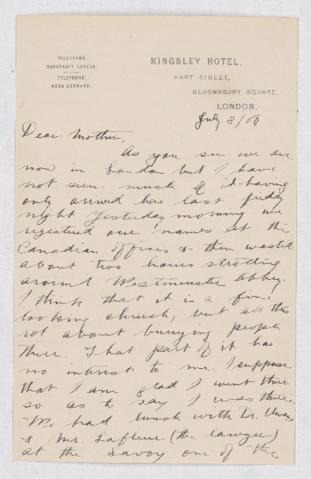 TELEGRAMS
BOOKCRAFT LONDON
TELEPHONE
GERRARD.
KINGSLEY HOTEL,
HART STREET,
BLOOMSBURY SQUARE,
LONDON.
July 8/06
Dear Mother,
As you see we are
now in London but I have
not seen much of it having
only arrived here last friday
night. Yesterday morning we
registered our names at the
Canadian offices & then wasted
about two hours strolling
around Westminster Abbey.
I think that it is a fine
looking church, but all this
rot about burying people
there. That part of it has
no interest to me. I suppose
that I am glad I went there
so as to say I was there.
We had lunch with Dr.
& Mr Lafleur (the lawyer)
at the Savoy one of the